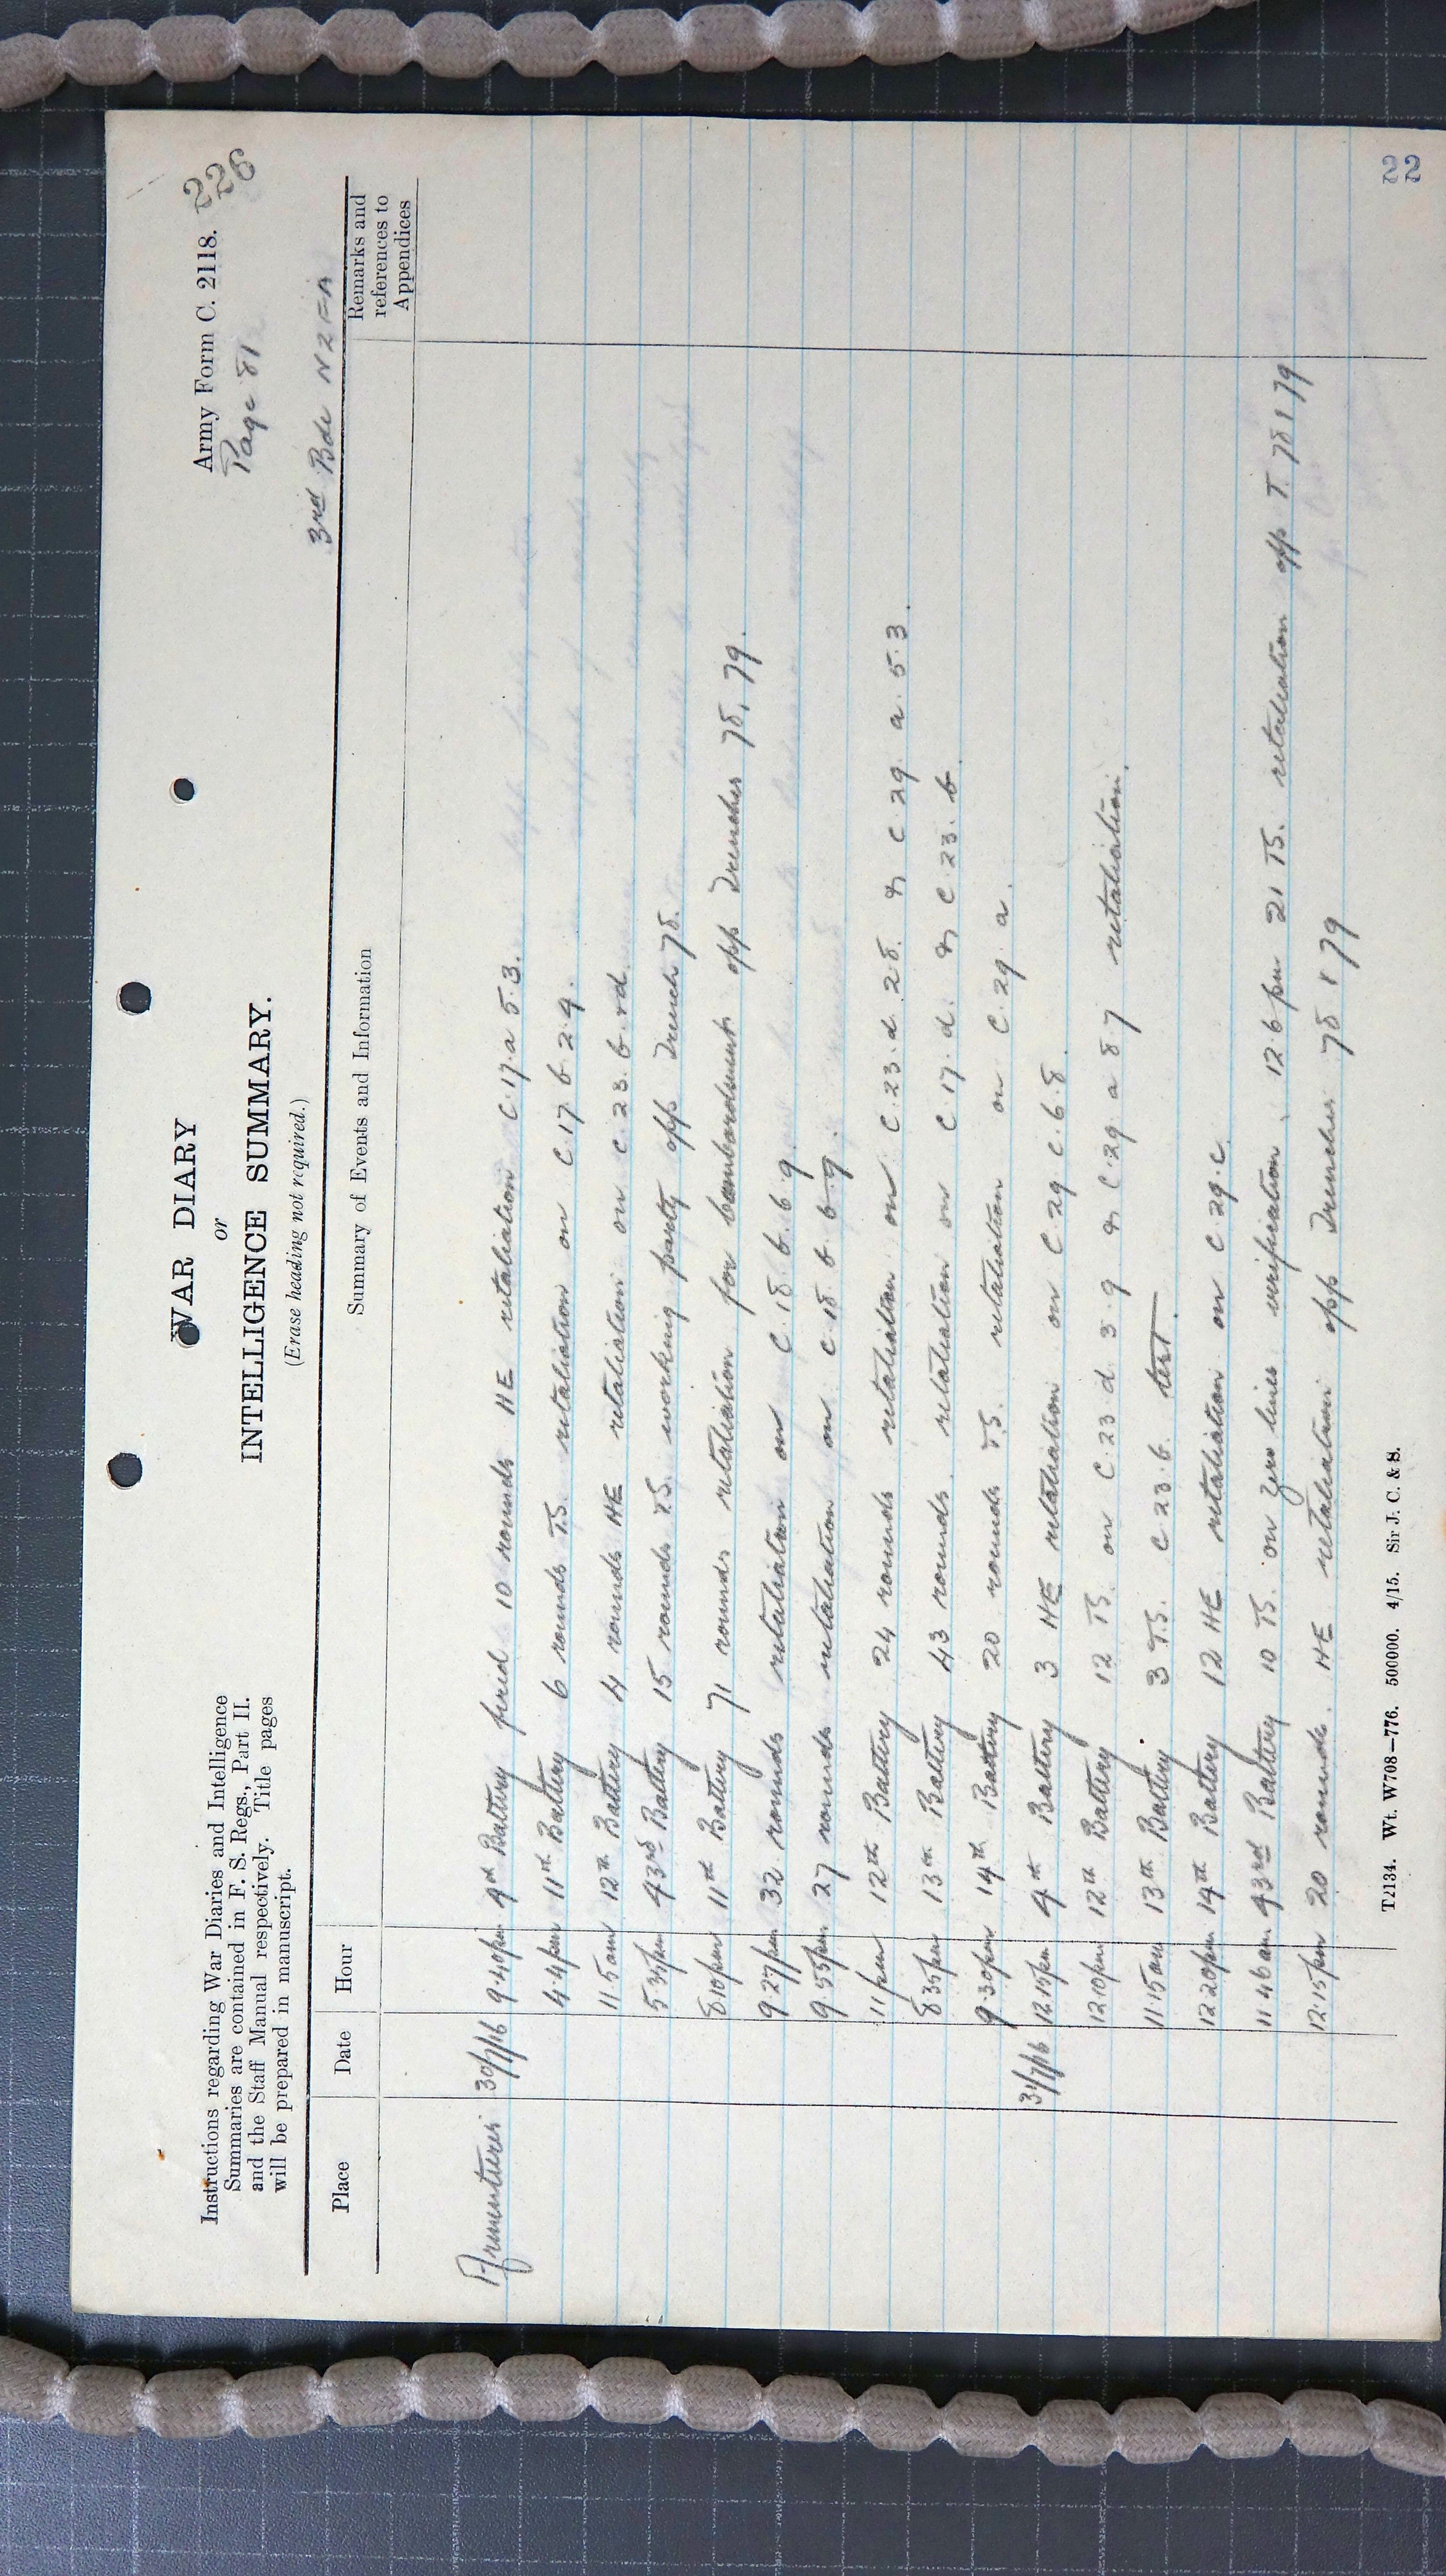 Army Form C. 2118.
226
Page 81
WAR DIARY
or
INTELLIGENCE SUMMARY.
(Erase heading not required.)
Instructions regarding War Diaries and Intelligence
Summaries are contained in F. S. Regs., Part II.
and the Staff Manual respectively. Title pages
will be prepared in manuscript.
3rd Bde NZFA
Place Date Hour Summary of Events and Information Remarks and references to Appendices
Armentieres 30/7/16 9.40pm 9th Battery fired 10 rounds HE retaliation C.17.a 5.3.
4.4pm 11th Battery 6 rounds T.S. retaliation on C.17.b.2.9.
11.5am 12th Battery 4 rounds HE retaliation on C.23.b.rd.
5.35pm 43rd Battery 15 rounds T.S. working party opp Trench 78.
8.10pm 11th Battery 71 rounds retaliation for bombardment opp Trenches 78, 79.
9.27pm 32 rounds retaliation on C.18.b.6.9
9.55pm 27 rounds retaliation on C.18.b.6.9.
11pm 12th Battery 24 rounds retaliation on C.23.d.28. & C.29.a.5.3.
8.35pm 13th Battery 43 rounds retaliation on C.17.d. & C.23.b.
9.30pm 14th Battery 20 rounds T.S. retaliation on C.29.a.
31/7/16 12.15pm 9th Battery 3 HE retaliation on C.29.C.6.8.
12.10pm 12th Battery 12 TS. on C.23.d.3.9 & C.29.a 8.7 retaliation.
11.15am 13th Battery 3 T.S. C.23.b. test.
12.20pm 14th Battery 12 HE retaliation on C.29.c.
11.46am 43rd Battery 10 TS. on zero lines verification, 12.6pm 21 TS. retaliation opp T. 78 & 79
12.15pm 20 rounds HE retaliation opp Trenches 78 & 79
T2134. Wt. W708—776. 500000. 4/15. Sir J. C. & S.
22